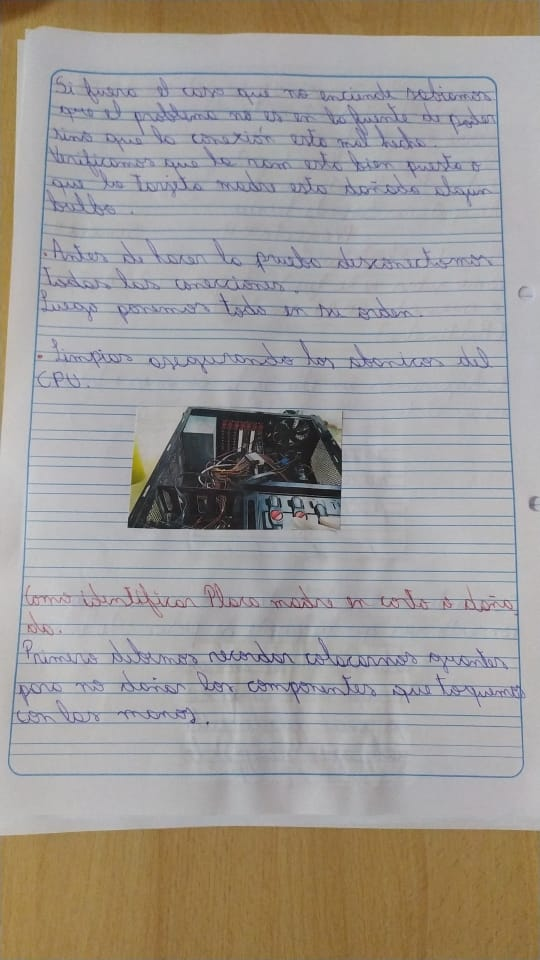 Si fuera el caso que no enciende sabiamos
que el problema no es en la fuente de poder
sino que la conexión esta mal hecha.
Verificamos que la ram esta bien puesta o
que la tarjeta madre esta dañada algun
bulbo.
. Antes de hacer la prueba desconectamos
todas las conecciones.
Luego ponemos todo en su orden.
. Limpias asegurando los abanicos del
CPU.
Como identificar Placa madre en corto o daña
da.
Primero debemos recordar colocarnos guantes
para no dañar los componentes que toquemos
con las manos.